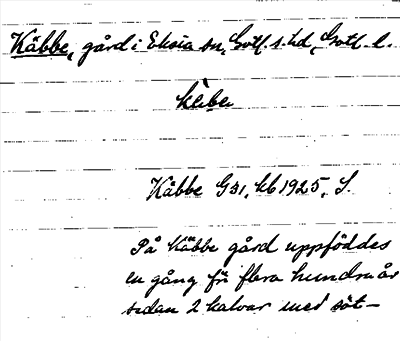 Käbbe, gård i Eksta sn, Gotl. s. hd, Gotl. l.
Käbbe GSI, kb 1925, S.
På Käbbe gård uppföddes
en gång för flera hundra år
sedan 2 kalvar med söt-